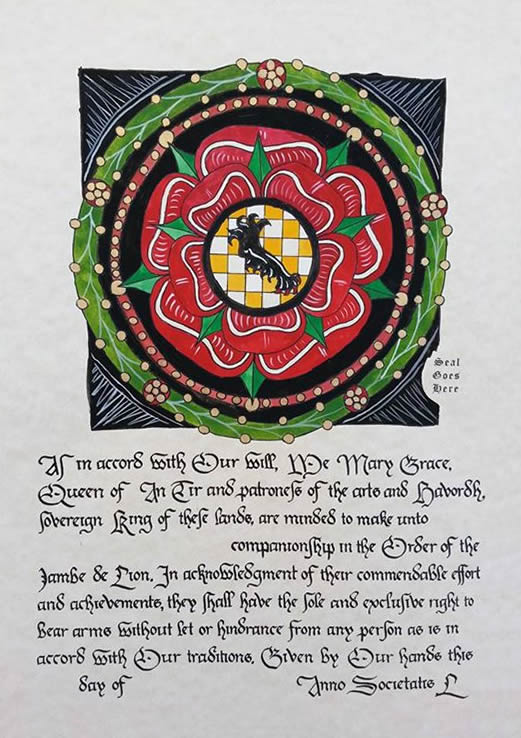 Seal
Goes
Here
As in accord with Our will, We Mary Grace,
Queen of An Tir and patroness of the arts and Havordh,
sovereign King of these lands, are minded to make unto
companionship in the Order of the
Jambe de Lion. In acknowledgment of their commendable effort
and achievements, they shall have the sole and exclusive right to
bear arms without let or hindrance from any person as is in
accord with Our traditions. Given by Our hands this
day of Anno Societatis L